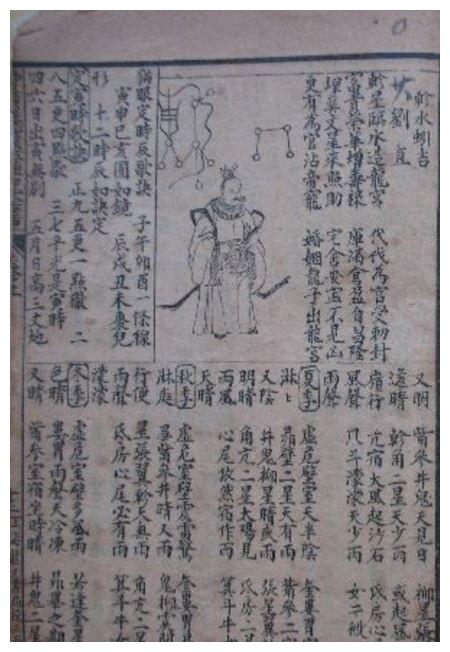 軫水蚓吉
劉直
軫星臨水造龍宮 代代為官受勅封
富貴榮華增壽祿 庫滿倉盈自昌隆
埋葬文星來照助 宅舍安寧不見凶
更有為官沾帝寵 婚姻龍子出龍宮
貓眼定時辰歌訣 子午卯酉一條線
寅申巳亥圓如鏡 辰戌丑未棗兒
形 十二時辰如訣定
定寅時歌訣 正九五更一點徹 二
八五更四點歇 三七平光是寅時
四六日出寅無別 五月日高三丈地
又明 觜參井鬼天見日 柳星張
遶晴 軫角二星天少雨 或起風
宿行 亢宿大風起沙石 氐房心
風聲 斗濛濛天少雨 女二
雨聲
夏季 虛危室壁天半陰 奎婁胃
淋淋 昴畢二星天有雨 觜參二
又陰 井鬼柳星晴或雨 張星翼
明晴 角亢二星太陽見 氐房二
西風 心尾依然宿作雨 箕斗牛
天晴
秋季 虛危室壁震雷驚 奎婁胃
淋庭 畢觜參井晴又雨 鬼柳雲開
行便 星張翼軫天無雨 角亢二
雨聲 氐房心尾必有雨 箕斗牛
濛濛
冬季 虛危室壁多風雨 若逢奎星
色晴 婁胃雨聲天冷凍 昴畢之期
又晴 觜參室宿坐時晴 井鬼二星